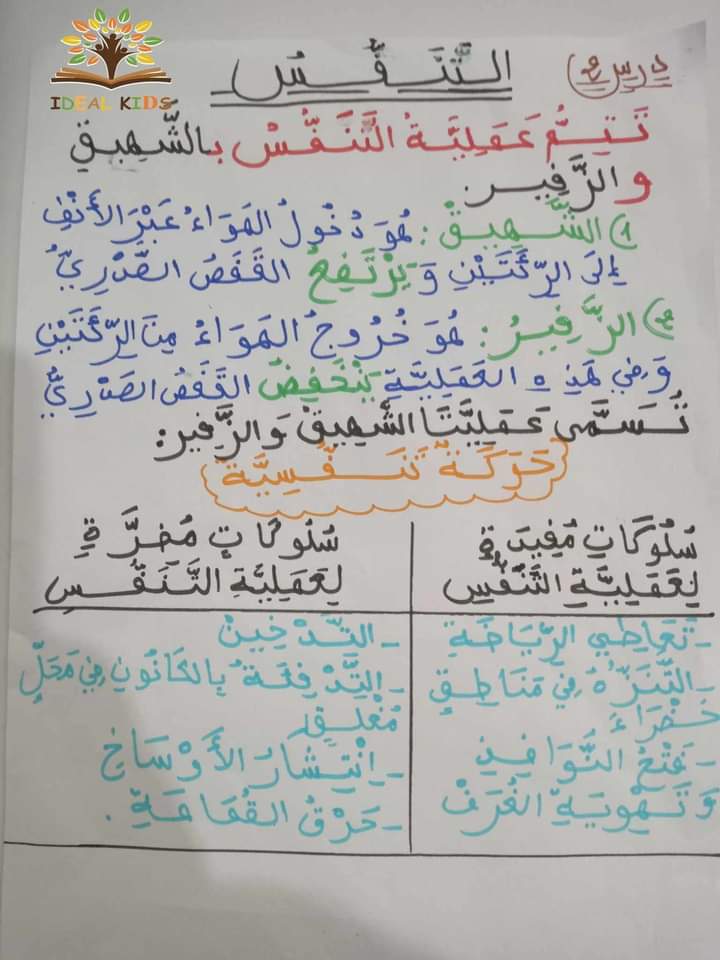 IDEAL KIDS
درس 2
التَّنَفُّسُ
تَتِمُّ عَمَلِيَّةُ التَّنَفُّسْ بِالشَّهِيقِ
وَ الزَّفِيرِ.
1) الشَّهِيقُ : هُوَ دُخُولُ الهَوَاءُ عَبْرَ الأَنْفِ
إِلَى الرِّئَتَيْنِ وَ يَرْتَفِعُ القَفَصُ الصَّدْرِيُّ
2) الزَّفِيرُ : هُوَ خُرُوجُ الهَوَاءُ مِنَ الرِّئَتَيْنِ
وَ فِي هَذِهِ العَمَلِيَّةِ يَنْخَفِضُ القَفَصُ الصَّدْرِيُّ
تُسَمَّى عَمَلِيَّتَا الشَّهِيقْ وَ الزَّفِير:
حَرَكَة تَنَفُّسِيَّة
سُلُوكَاتٍ مُفِيدَةٍ
لِعَمَلِيَّةِ التَّنَفُّسِ
- تَعَاطِي الرِّيَاضَةِ
- التَّنَزُّهُ فِي مَنَاطِقٍ
خَضْرَاءَ
- فَتْحُ النَّوَافِذِ
وَ تَهْوِيَةِ الغُرَفْ
سُلُوكَاتٍ مُضِرَّةٍ
لِعَمَلِيَّةِ التَّنَفُّسِ
- التَّدْخِينْ
- التَّدْفِئَةُ بِالكَانُونِ فِي مَحَلٍّ
مُغْلَقٍ
- اِنْتِشَارُ الأَوْسَاخِ
- حَرْقُ القُمَامَةِ.